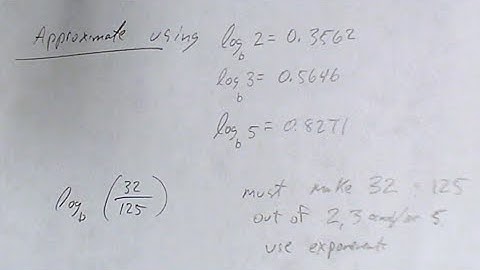 Approximate using log_b 2 = 0.3562
log_b 3 = 0.5646
log_b 5 = 0.8271
log_b (32/125) must make 32 + 125
out of 2, 3 and/or 5
use exponents